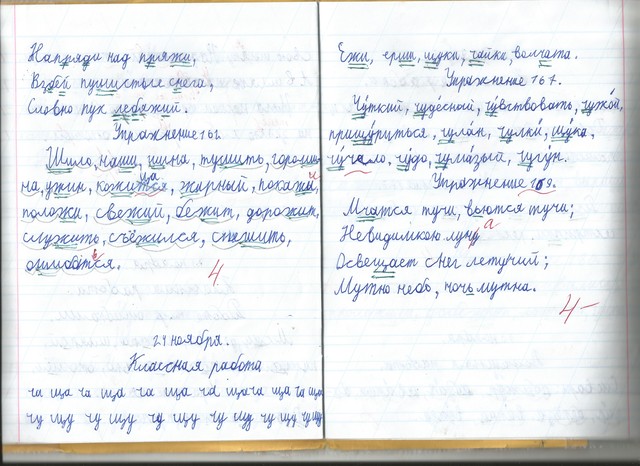 Напряди над пряжи,
Взбей пушистые снега,
Словно пух лебяжий.
Упражнение 161.
Шило, наши, шина, тушить, горошина
на, ужин, кожится, жирный, покажи,
положи, свежий, бежит, дорожит,
служить, съёжился, спешить,
ошибатся.
4
24 ноября.
Классная работа
ча ща ча ща ча ща ча щача ща ча ща
чу щу чу щу чу щу чу щу чу щу чущу
Ежи, ерши, щуки, чайки, волчата.
Упражнение 167.
Чуткий, чудесной, чувствовать, чужой,
прищуриться, чулан, чулки, щука,
чучало, чудо, чумазый, чугун.
Упражнение 169.
Мчатся тучи, вьются тучи;
Невидимкою луну а
Освещает снег летучий;
Мутно небо, ночь мутна.
4-